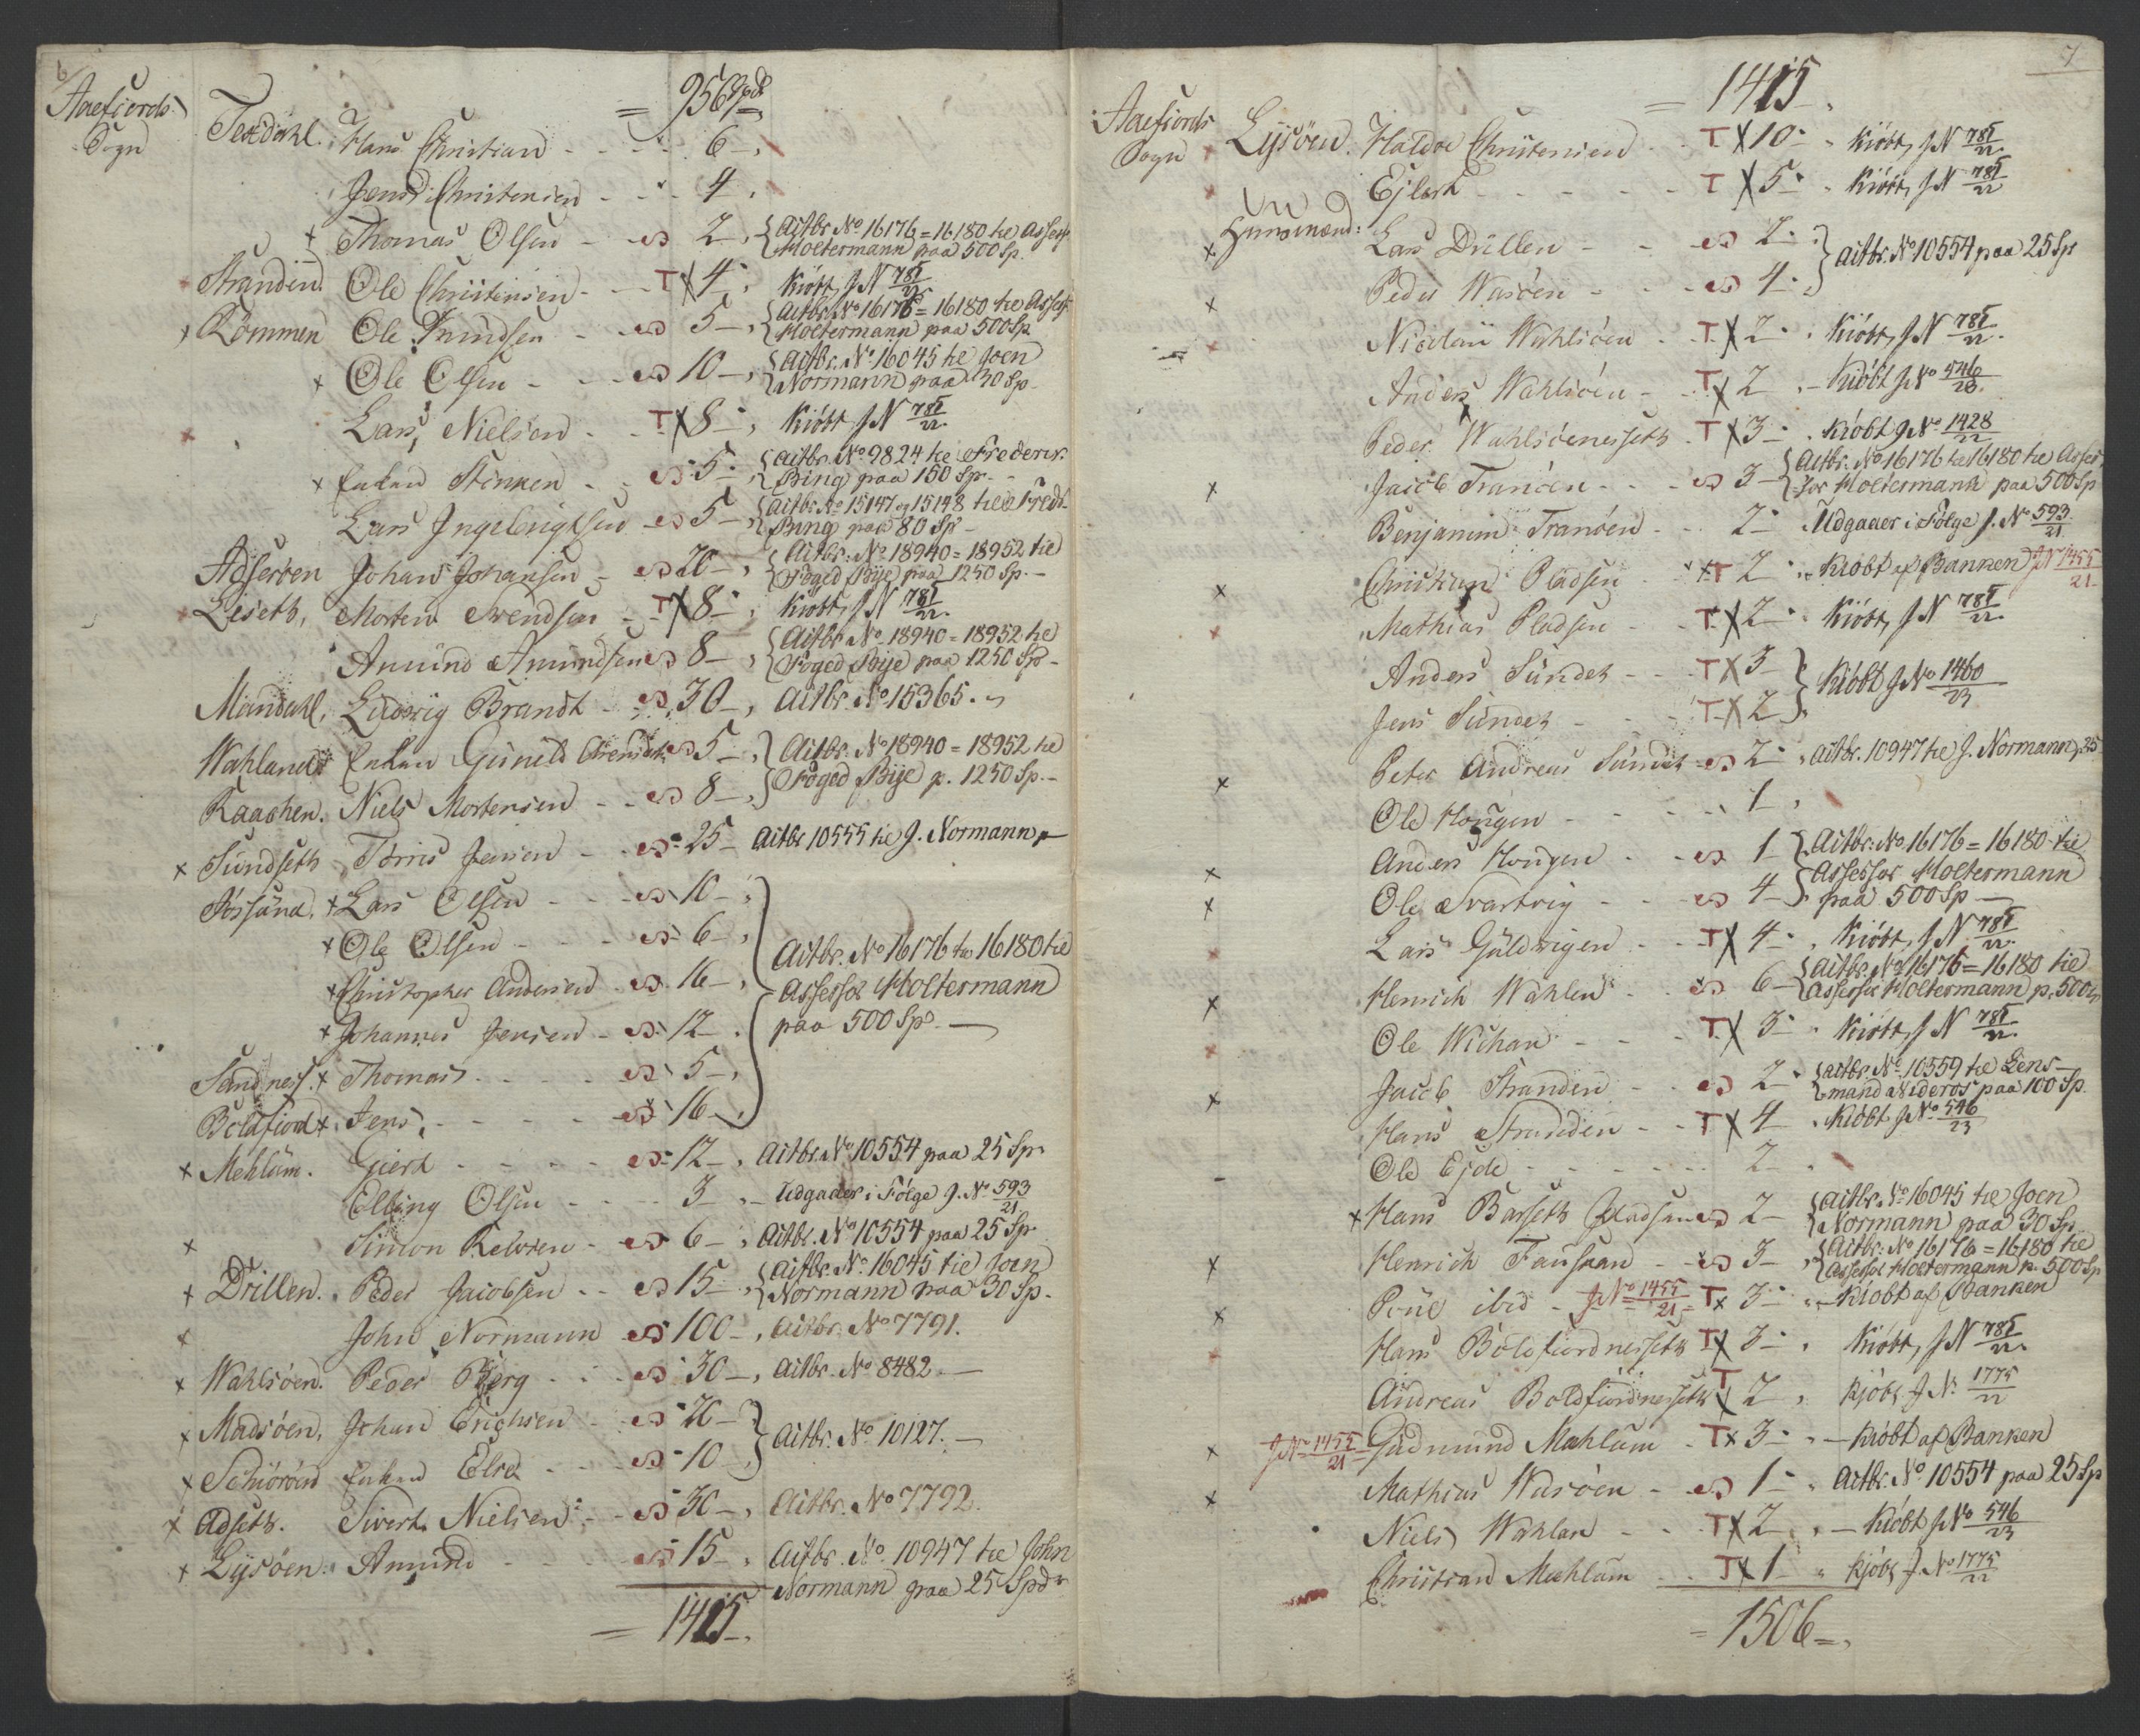 6
Aaefiords
Sogn
= 956 Spd
Testdahl. Hans Christian - - - 6 -,
Jens Christensen - - - 4 ,
x Thomas Olsen - - 2, { Actbr No 16176 = 16180 til Assess.
Holtermann paa 500 Sp.
Stranden Ole Christensen - - T X 4 - Kiöbt, J N 781/22
x Rommen Ole Knudsen - - 5 -, { Actbr. No 16176 = 16180 til Assess.
Holtermann paa 500 Sp
x Ole Olsen - - - 10 -, { Actbr. No 16045 til Joen
Normann paa 30 Sp -
x Lars Nielsen - - T X 8 -, Kiöbt J N 781/22.
x Enken Stinken - - 5 -, { Actbr. No 9824 til Frederik
Bing paa 150 Sp. -
Lars Ingebrigtsen - 5 -, { Actbr. No 15147 og 15148 til Fredr.
Bing paa 80 Sp -
Adseröen Johan Johansen - 20 -, { Actbr. No 18940 = 18952 til
Foged Bije paa 1250 Sp. -
Leseth, Morten Svendsen - T X 8 -, Kiöbt, J N 781/22.
Amund Amundsen 8 -, { Actbr No 18940 = 18952 til
Foged Bije paa 1250 Sp -
Mandahl, Ludvig Brandt - 30 -, Actbr. No 15365.
Wahland Enken Gunild 5 -, } Actbr. No 18940 = 18952 til
Raashen. Niels Mortensen - - 8 -, } Foged Bije p. 1250 Sp. -
x Sundseth Törris Jensen - - 25 - Actbr 10555 til J. Normann
Jössund. x Lars Olsen - - - 10 -,
x Ole Olsen - - - 6 -,
x Christopher Andersen - 16 -, Actbr. No 16176 til 16180 til
Assessor Holtermann
x Johannes Jensen - 12 -. paa 500 Sp. -
Sandness. x Thomas - - - - 5 -,
Boldfiord x Jens, - - - - 16 -,
x Mehlum. Giert - - - - 12 -, Actbr. No 10554 paa 25 Sp.
Elling Olsen - - - 3 ,- Udgaaer i Fölge J. No 593/21
x Simon Relvsen - 6 -, Actbr. No 10554 paa 25 Sp
x Drillen. Peder Jacobsen - - 15 -, { Actbr. No 16045 til Joen
Normann paa 30 Sp.
x John Normann 100 -, Actbr. No 7791.
x Wahlsöen. Peder Berg - - - 30 -, Actbr. No 8482. -
x Madsöen, Johan Erichsen - 20 - } Actbr. No 10127. -
x Schiöröen Enken Elsd - - - 10 -, }
x Adseth. Sivert Nielsen - - 30 -, Actbr. No 7792.
x Lijsöen. Amund - - - - 15 -. Actbr. No 10947 til John
Normann paa 25 Spdr
= 1415 -.
7
Aaefiords
Sogn
= 1415 -.
x Lijsöen. Haldor Christensen - - T X 10 - Kiöbt, J N 781/22.
x Ejlert - - - - - T X 5 - Kiöbt, J N 781/22
Huusmænd:
x Lars Drillen - - 2 - } Actbr. No 10554 paa 25 Sp
x Peder Waröen - - - 4 - }
x Nicolai Wahlsöen - T X 2 - Kiöbt, J N 781/22.
Anders Wahlsöen - T X 2 ,- Kiöbt J No 546/23.
Peder Wahlsöenesseth - T X 3 - Kiöbt J No 1428/22
x Jacob Tranöen - - - 3 - { Actbr. No 16176 til 16180 til Asses-
sor Holtermann paa 500 Sp
Benjamin Tranöen - - 2 - Udgaaer i Fölge J. No 593/21
x Christian Pladsen - T 2 - Kiöbt af Banken J No 1455/21
x Mathias Pladsen - - T X 2 - Kiöbt, J N 781/22.
Anders Sundet - - T X 3 - } Kiöbt J No 1460/23
Jens Sundet - - - T X 2 }
x Peter Andreas Sundet 2 - Actbr. 10947 til J. Normann p. 25
Ole Hougen - - - - 1 ,
x Anders Hougen - - 1 - } Actbr. No 16176 = 16180 til
Assessor Holtermann
x Ole Svartvig - - 4 - } paa 500 Sp -
x Lars Guldvigen - - T X 4 - Kiöbt, J N 781/22.
x Henrich Wahlen - - 6 - { Actbr. No 16176 = 16180 til
Assessor Holtermann p. 500 Sp
x Ole Wichan - - - T X 3 - Kiöbt, J N 781/22.
x Jacob Stranden - - 2 - { Actbr. No 10559 til Lens-
mand Nideros paa 100 Sp.
Hans Stranden - - T X 4 - Kiöbt J No 546/23
- Ole Ejde - - - - - 2 - .
x Hans Barseth Pladsen 2 - { Actbr. No 16045 til Joen
Normann paa 30 Sp
x Henrich - 3 -, { Actbr. No 16176 = 16180 til
Assessor Holtermann p. 500 Sp
x Poul ibid - J No 1455/21 T x 3 - Kiöbt af Banken
x Hans Boldfiordnesseth T X 3 - Kiöbt, J N 781/22.
Andreas Boldfiordnesseth T X 2 , Kjöbt J. No 1775/22
x J No 1455/21 Gudmund Mehlum - T x 3 - - Kiöbt af Banken
x Mathias Waröen - 1 - Actbr. No 10554 paa 25 Sp
Niels Wahlan - - T X 2 , - Kiöbt J No 546/23
Christian Mehlum - - T X 1 - Kjöbt J. No 1775/22
= 1506 -,